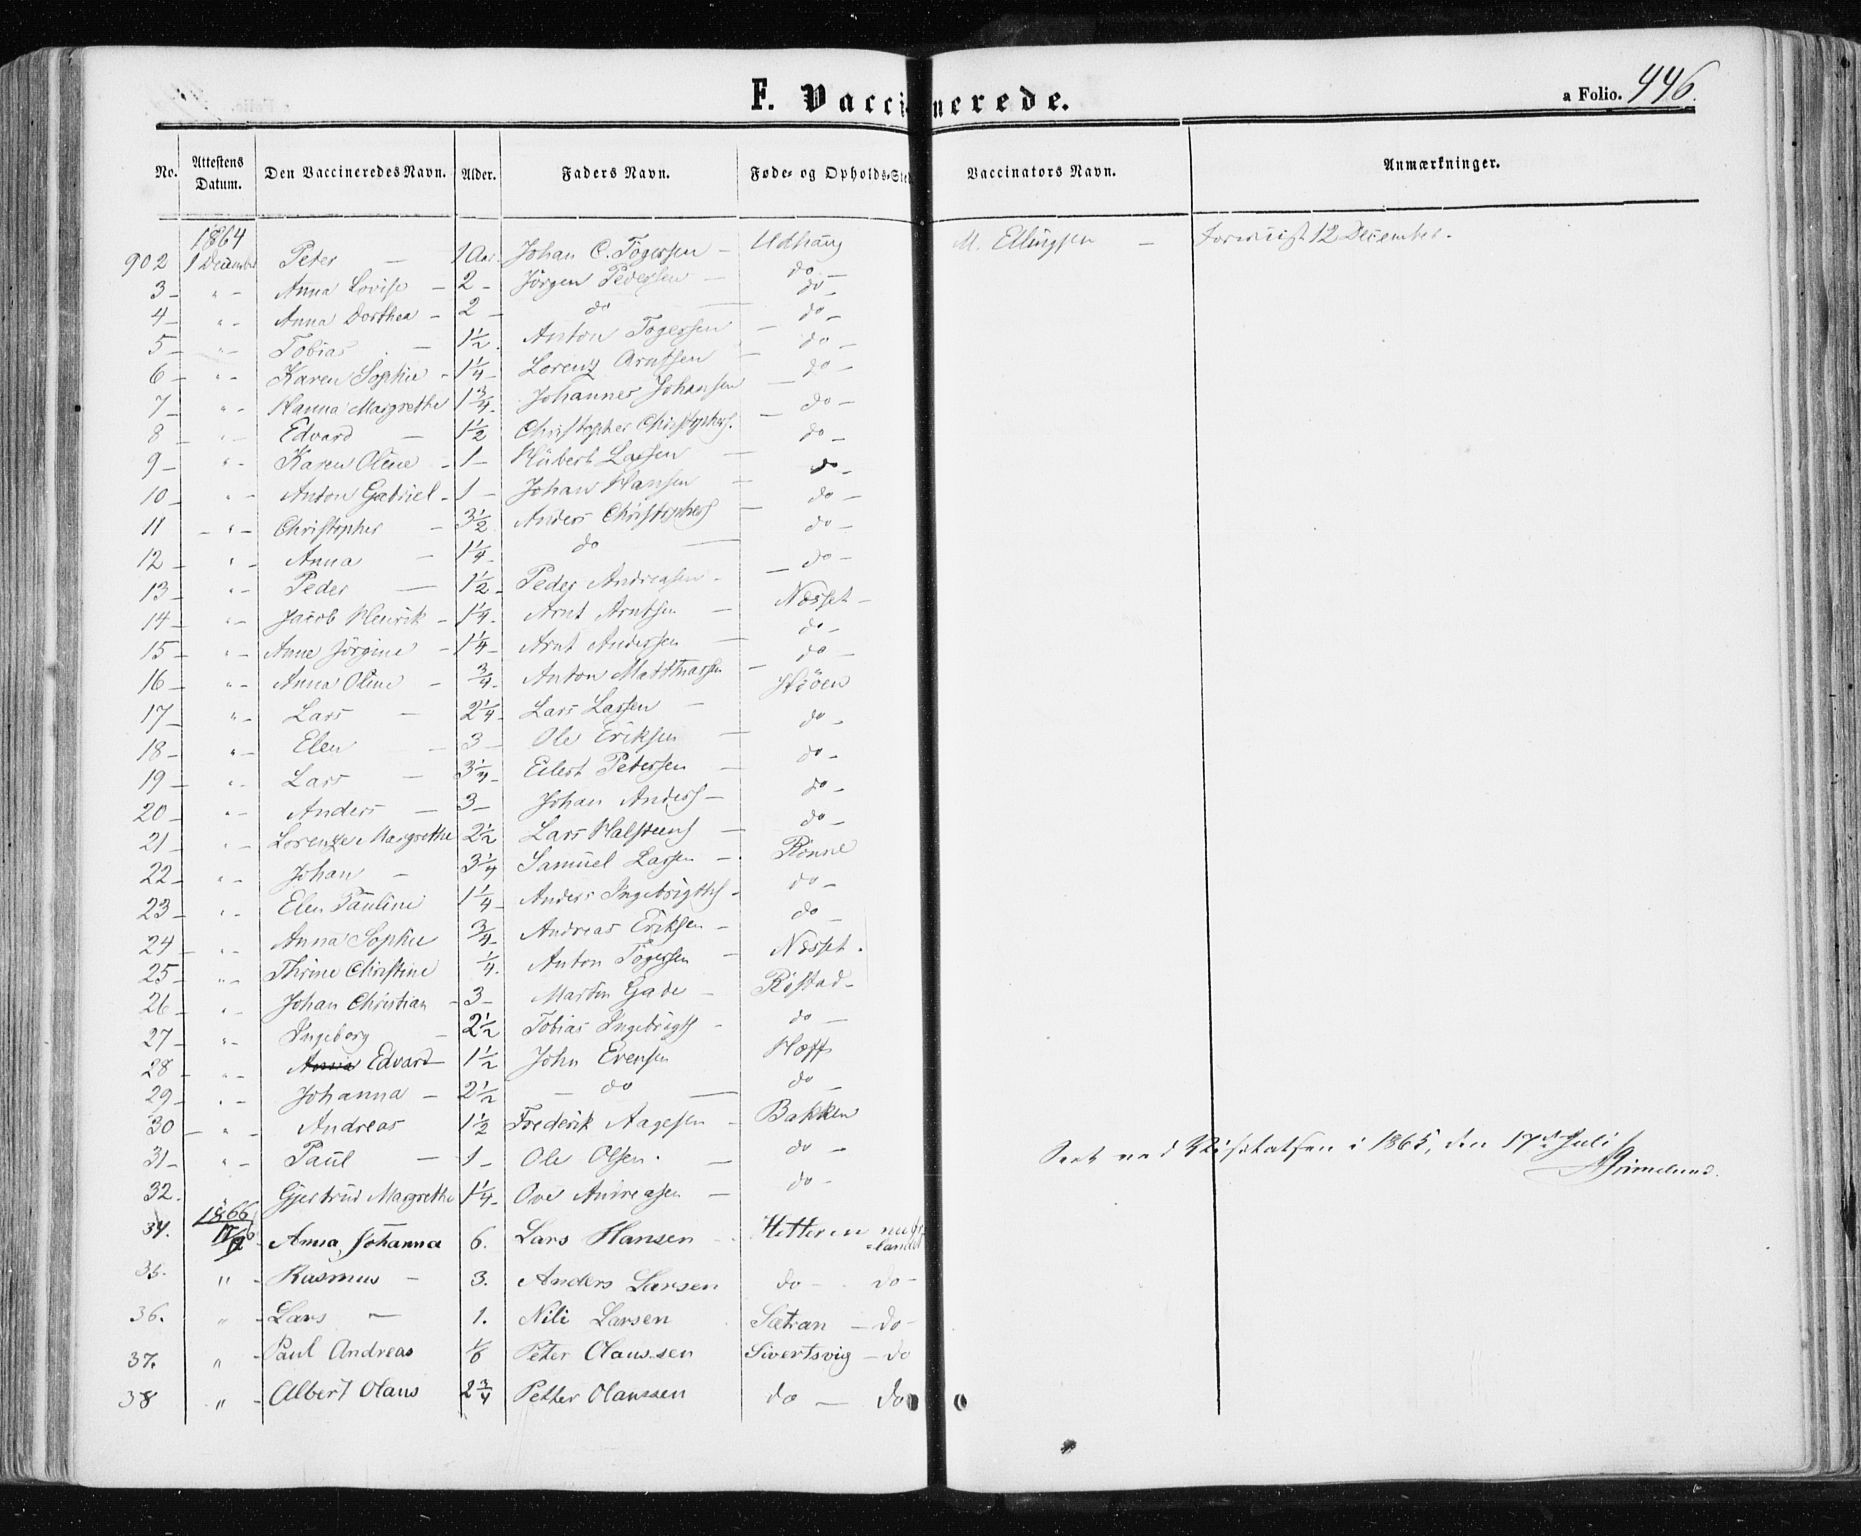 F. Vaccinerede. a Folio. 446.
No. Attestens Datum. Den Vaccineredes Navn. Alder. Faders Navn. Føde- og Opholds-Sted Vaccinators Navn. Anmærkninger.
1864
902 1 December Peter — 1 Aar Johan C. Togersen — Udhaug M. Ellingsen — 12 December.
3 — " — Anna Lovise — 2 — Jörgen Pedersen — do —
4 — " — Anna Dorthea — 2 — do — do —
5 — " — Tobias — 1½. Anton Togersen — do —
6 — " — Karen Sophie — 1¼ — Lorenz Arntsen — do —
7 — " — Hanna Margrethe 1¾. Johannes Johansen — do —
8 — " — Edvard — 1½ Christopher Christophers. — do —
9 — " — Karen Oline — 1 — Hübert Larsen — do —
10 — " — Anton Gabriel — 1 — Johan Hansen — do —
11 — " — Christopher — 3½ Anders Christophers — do —
12 — " — Anna — 1¼. do — do —
13 — " — Peder — 1½ — Peder Andreasen — do —
14 — " — Jacob Henrik — 1¼. Arnt Arntsen — Næsset —
15 — " — Anne Jörgine — 1¼ — Arnt Andersen — do —
16 — " — Anna Oline — ¾. Anton Matthiassen — do —
17 — " — Lars — 2¼. Lars Larsen — Høøen
18 — " — Elen — 3 — Ole Eriksen — do —
19 — " — Lars — 3¼. Eilert Petersen — do —
20 — " — Anders — 3 — Johan Anders — do —
21 — " — Lorentze Margrethe 2½ Lars Halsteens — do —
22 — " — Johan — 3¼ Samuel Larsen — Rønne
23 — " — Elen Pauline 1¼. Anders Ingebrigts — do —
24 — " — Anna Sophie ¾. Andreas Eriksen — do —
25 — " — Thrine Christine ¼. Anton Togersen — Næsset.
26 — " — Johan Christian — 3 — Martin Gade — Røstad —
27 — " — Ingeborg — 2½ Tobias Ingebrigts — do —
28 — " — Anna Edvard 1½ John Evensen Hoff
29 — " — Johanna — 2½ — do — do —
30 — " — Andreas 1½ Frederik Aagesen — Bakken
31 — " — Paul — 1 — Ole Olsen. — do — i 1865, den 17de Juli
32. Gjertrud Margrethe 1¼. Ove Andreasen — do — Grimelund.
1866
34. 17/12 Anna Johanna 6. Lars Hansen — Hitteren
35. " Rasmus — 3. Anders Larsen do — do —
36. " Lars — 1. Nils Larsen Sætran — do —
37. " Paul Andreas Peter Olaussen Sivertsvig — do
38 " Albert Olaus 2¾ Petter Olaussen do — do